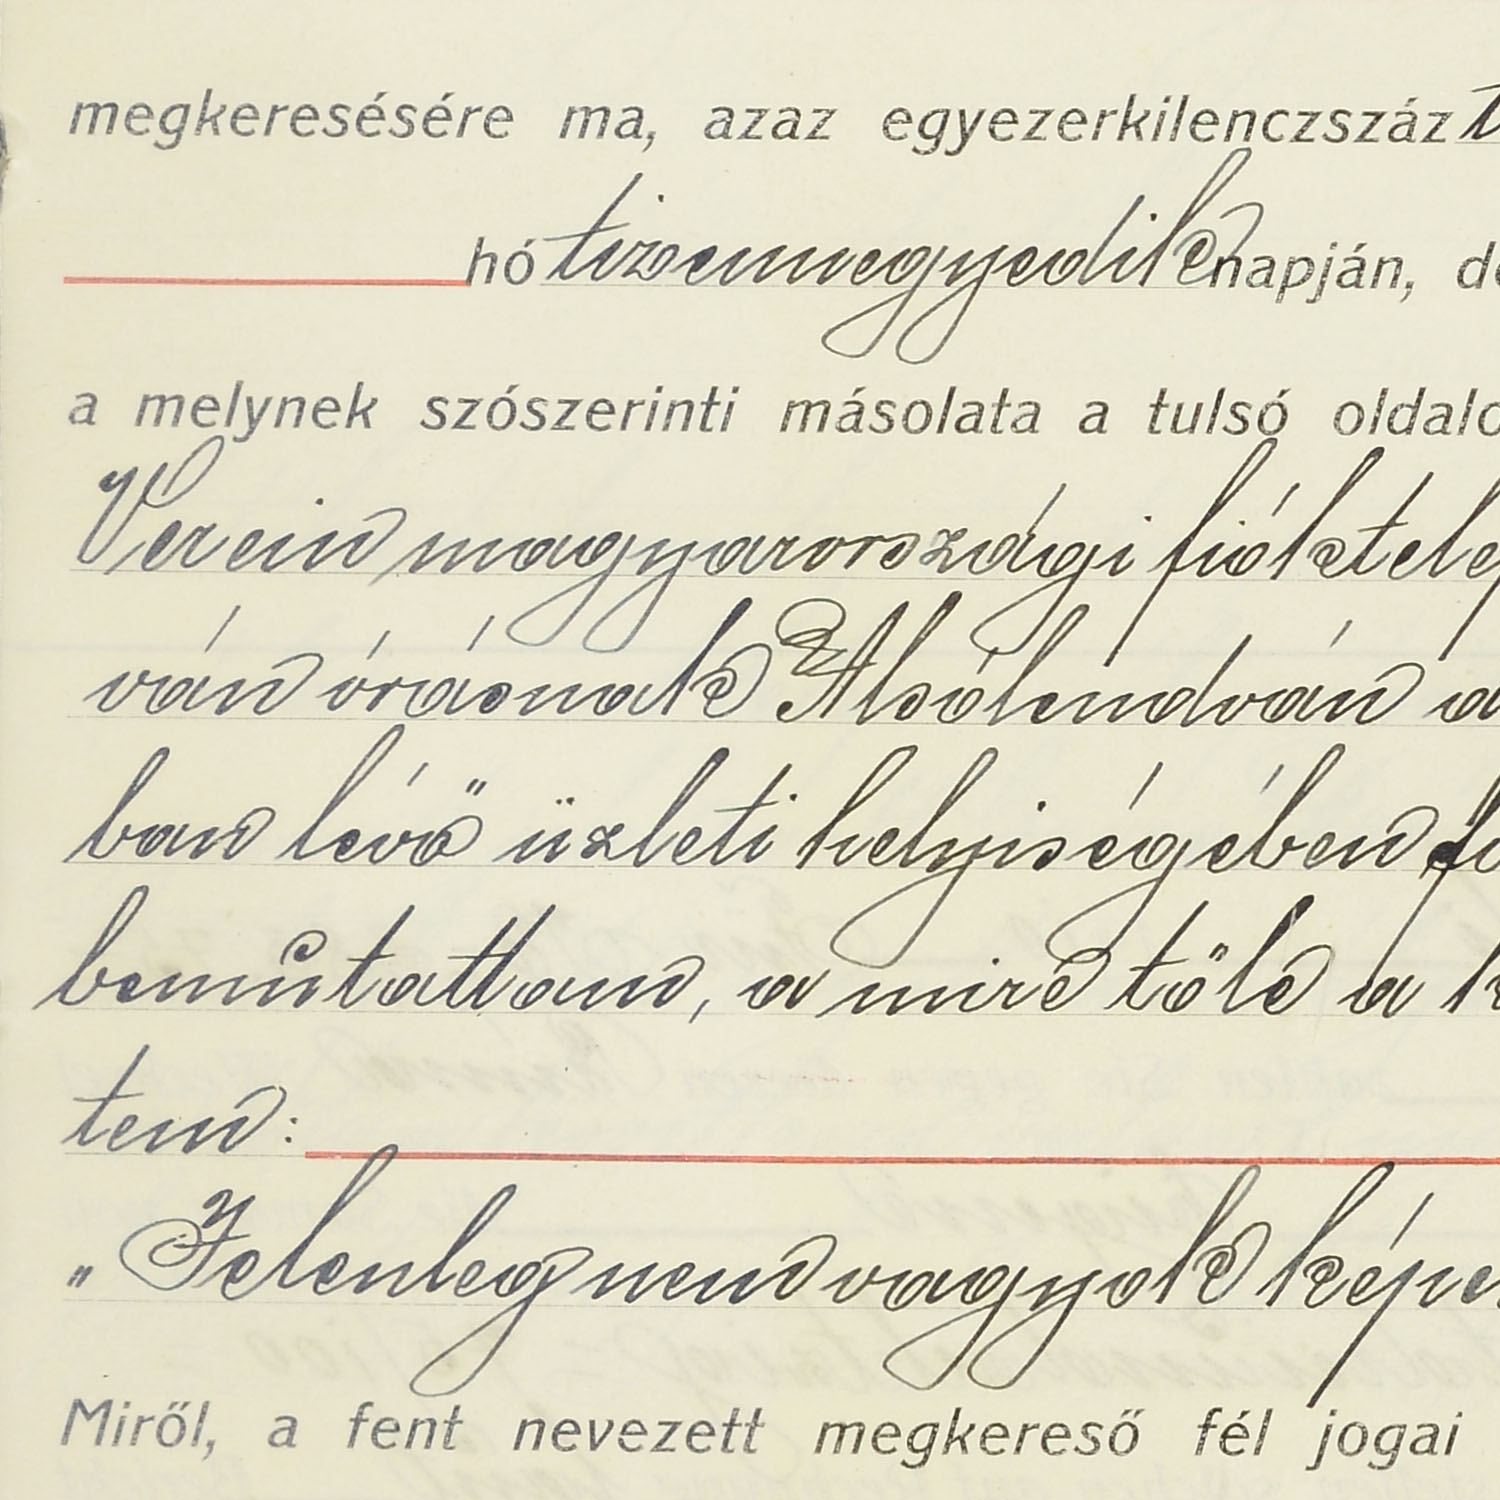 megkeresésére ma, azaz egyezerkilenczszáz t
hó tizennegyedik napján, de
a melynek szószerinti másolata a tulsó oldalo
Verein magyarországi fióktelep
ván órásnak Alsólendván a
ban lévő üzleti helyiségében fo
bemutattam, a mire tőle a k
tem:
„Jelenleg nem vagyok képes
Miről, a fent nevezett megkereső fél jogai